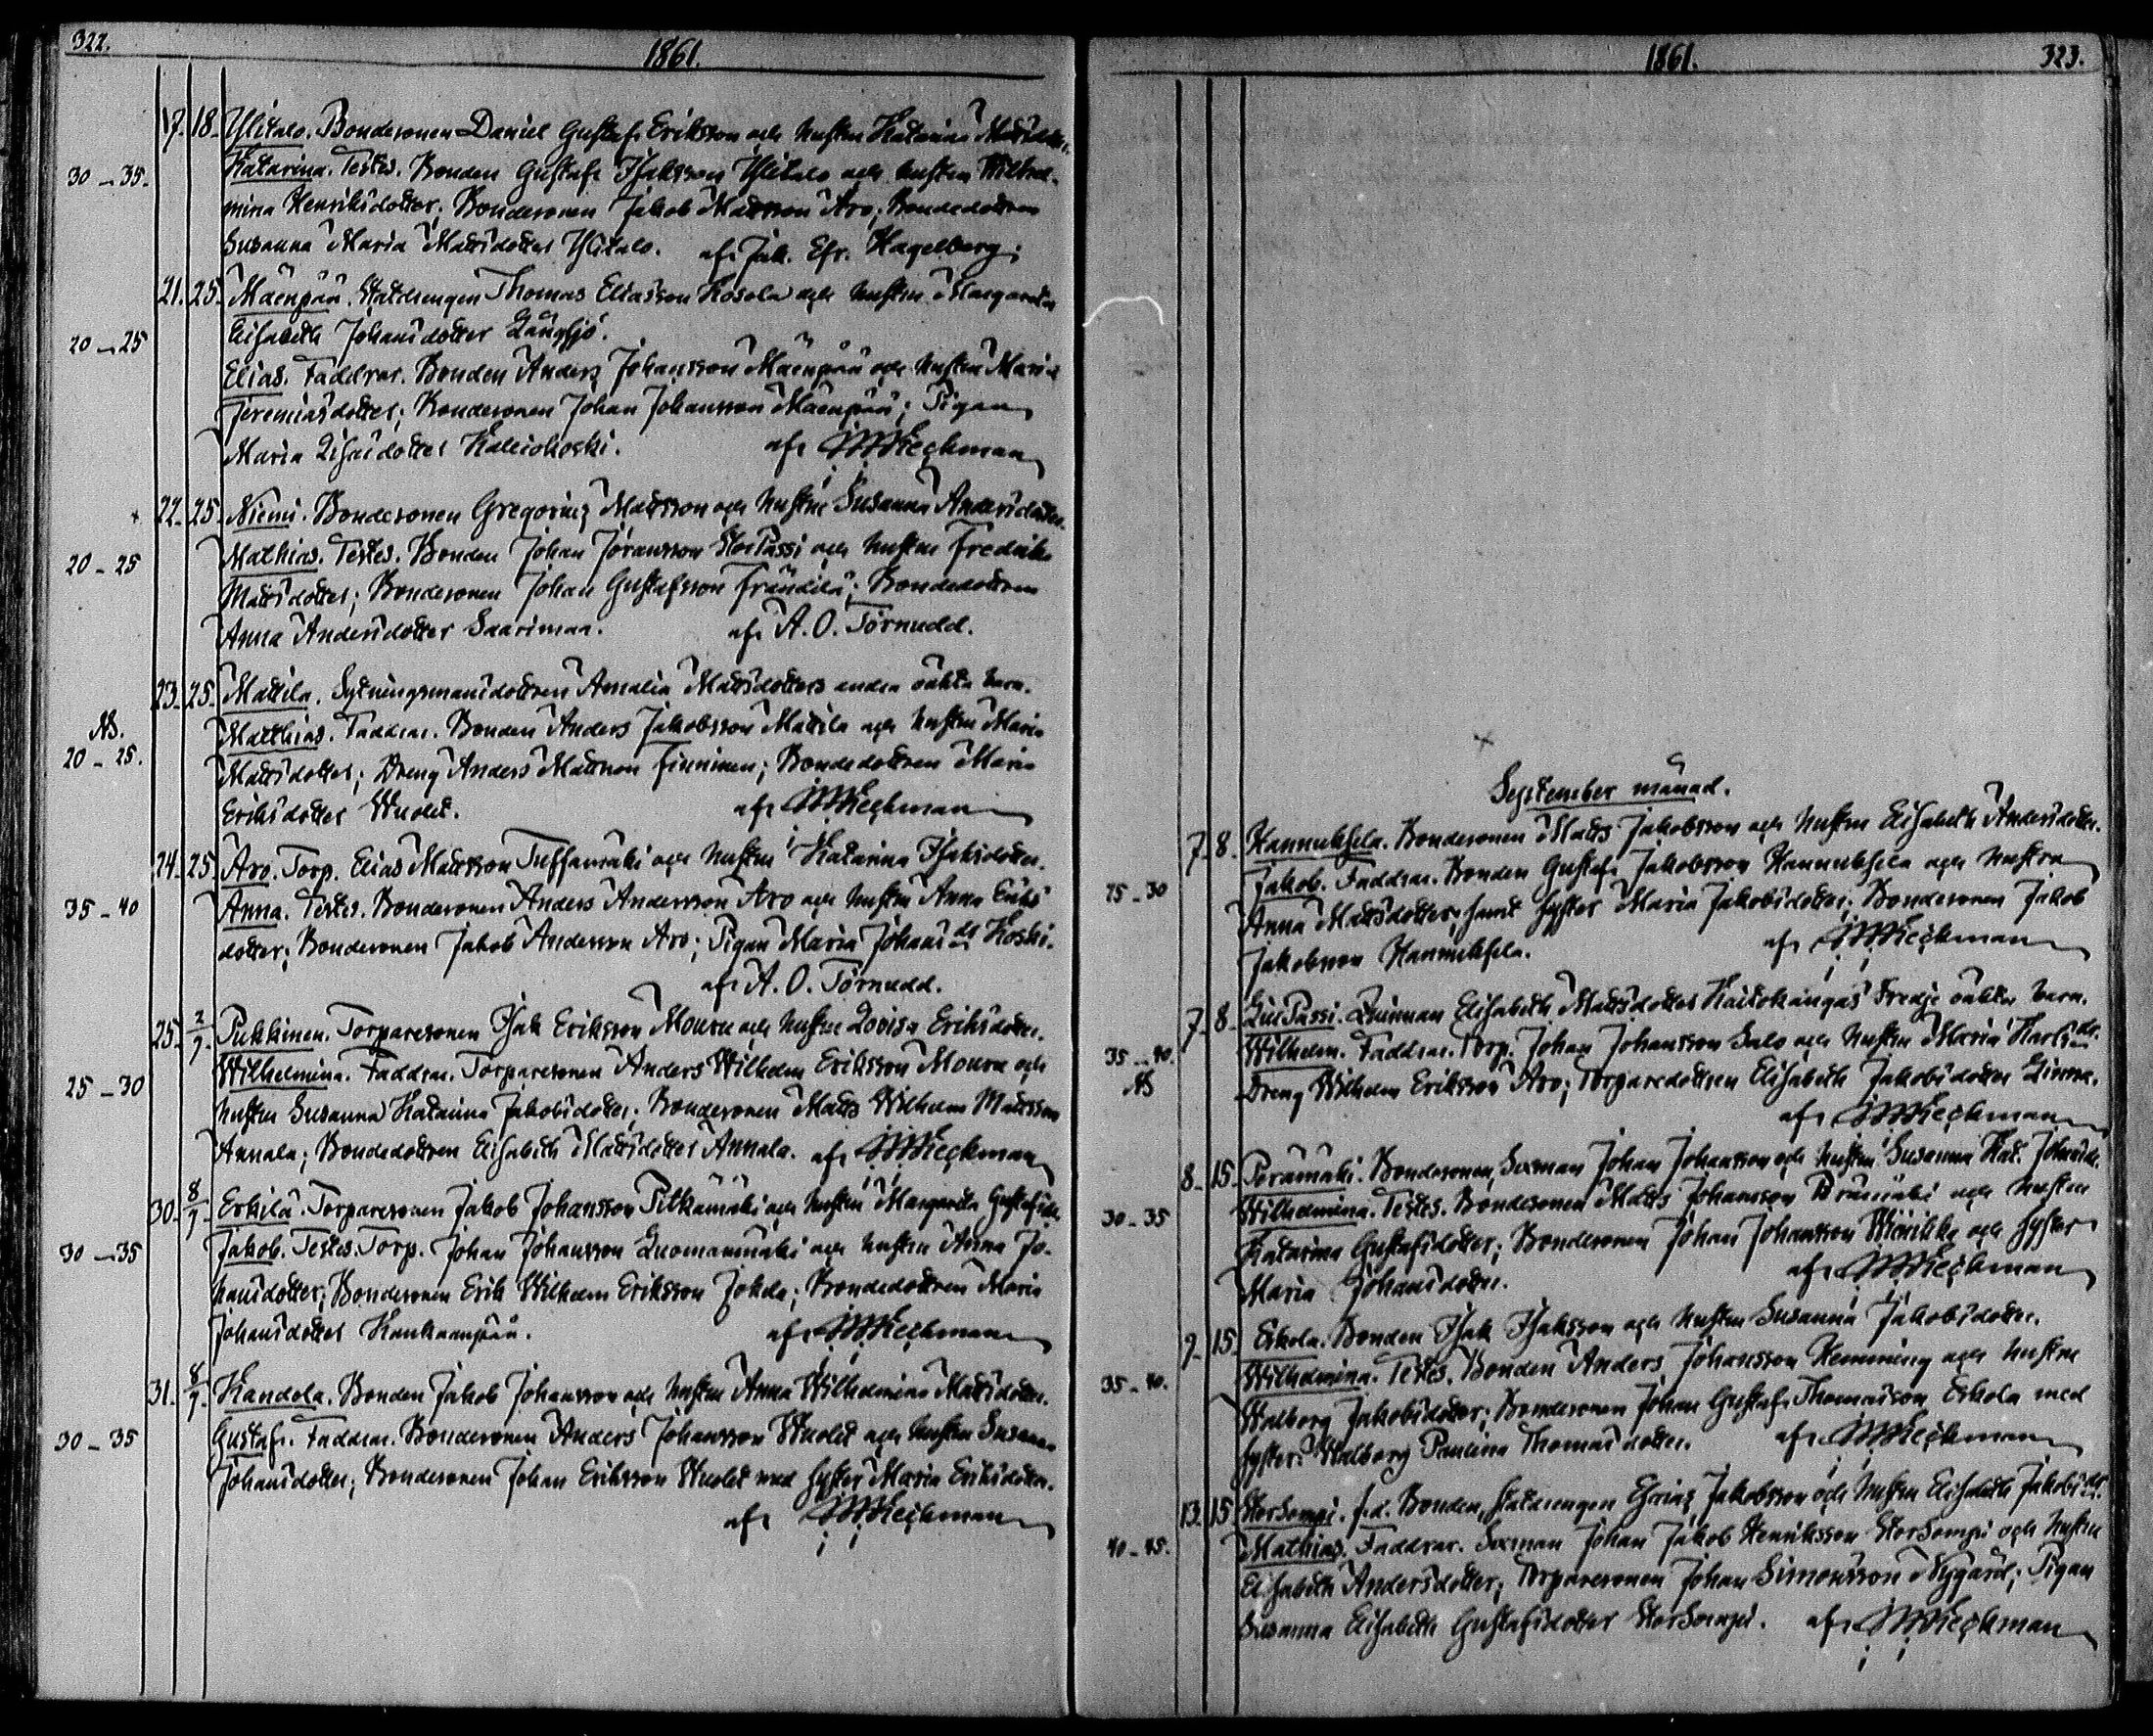 322.
1861.
17. 18. Ylitalo. Bondesonen Daniel Gustaf Eriksson och hustru Katarina
30 - 35. Katarina. Testes. Bonden Gustaf Isaksson Ylitalo och hustru Wilhel-
mina Henriksdotter; Bondesonen Jakob Mattsson Aro; Bondedottren
Susanna Maria Mattsdotter Ylitalo. af Jak. Efr. Hagelberg;
21. 25. Mäenpää. Statdrengen Thomas Eliasson Kosola och hustru Margareta
20 - 25 Elisabeth Johansdotter Långsjö.
Elias. Faddrar. Bonden Anders Johansson Mäenpää och hustru Maria
Jeremiasdotter; Bondesonen Johan Johansson Mäenpää; Pigan
Maria Kaleiohoski. af Heckman
22. 25. Niemi. Bondesonen Gregorius Mattsson och hustru Susanna Andersdotter.
20 - 25 Mathias. Testes. Bonden Johan Jöransson StorPassi och hustru Fredrika
Mattsdotter; Bondesonen Johan Gustafsson Frändilä; Bondedottren
Anna Andersdotter Saarimaa. af A. O. Törnudd.
23. 25. Mattila. Sytningsmansdottren Amalia Mattsdotters andra oäkta barn.
NB.
20 - 25. Matthias. Faddrar. Bonden Anders Jakobsson Mattila och hustru Maria
Mattsdotter; Dreng Anders Mattsson Finninen; Bondedottren Maria
Eriksdotter Wuolet. af Heckman
24. 25. Aro. Torp. Elias Mattsson och hustru Katarina Isaksdotter.
35 - 40 Anna. Testes. Bondesonen Anders Andersson Aro och hustru Anna Eriks-
dotter; Bondesonen Jakob Andersson Aro; Pigan Maria Johansdr Koski.
af A. O. Törnudd.
25. 2/9. Pukkinen. Torparesonen Isak Eriksson Mourn och hustru Lovisa Eriksdotter.
25 - 30 Wilhelmina. Faddrar. Torparesonen Anders Wilhelm Eriksson Mourn och
hustru Susanna Katarina Jakobsdotter; Bondesonen Matts Wilhelm Mattsson
Annala; Bondedottren Elisabeth Mattsdotter Annala. af Heckman
30. 8/9. Erkilä. Torparesonen Jakob Johansson Pitkämäki och hustru Margareta Gustafsdr.
30 - 35 Jakob. Testes. Torp. Johan Johansson Luomanmäki och hustru Anna Jo-
hansdotter; Bondesonen Erik Wilhelm Eriksson Jokela; Bondedottren Maria
Johansdotter Kankaanpää. af Heckman
31. 8/9. Kandola. Bonden Jakob Johansson och hustru Anna Wilhelmina Mattsdotter.
30 - 35 Gustaf. Faddrar. Bondesonen Anders Johansson Wuolet och hustru Susanna
Johansdotter; Bondesonen Johan Eriksson Wuolet med syster Maria Eriksdotter.
af Heckman
1861.
323.
September månad.
7. 8. Hannuksela. Bondesonen Matts Jakobsson och hustru Elisabeth Andersdotter.
25 - 30 Jakob. Faddrar. Bonden Gustaf Jakobsson Hannuksela och hustru
Anna Mattsdotter, samt syster Maria Jakobsdotter; Bondesonen Jakob
Jakobsson Hannuksela. af Heckman
7. 8. LillPassi. Qvinnan Elisabeth Mattsdotter Kaitokangas tredje oäkta barn.
35 - 40. Wilhelm. Faddrar. Torp. Johan Johansson Salo och hustru Maria Karlsdr.
NB Dreng Wilhelm Eriksson Aro; Torparedottren Elisabeth Jakobsdotter
af Heckman
8. 15. Perämäki. Bondesonen, Sexman Johan Johansson och hustru Susanna Kat. Johansdr.
30 - 35 Wilhelmina. Testes. Bondesonen Matts Johansson Perämäki och hustru
Katarina Gustafsdotter; Bondesonen Johan Johansson och syster
Maria Johansdotter. af Heckman
9. 15. Eskola. Bonden Isak Isaksson och hustru Susanna Jakobsdotter.
35 - 40. Wilhelmina. Testes. Bonden Anders Johansson Hemming och hustru
Walborg Jakobsdotter; Bondesonen Johan Gustaf Thomasson Eskola med
syster Walborg Paulina Thomasdotter. af Heckman
13. 15 StorSompi. f.d. Bonden, statdrengen Esaias Jakobsson och hustru Elisabeth Jakobsdr.
40 - 45. Mathias. Faddrar. Sexman Johan Jakob Henriksson StorSompi och hustru
Elisabeth Andersdotter; Torparesonen Johan Simonsson Nygård; Pigan
Susanna Elisabeth Gustafsdotter StorSompi. af Heckman